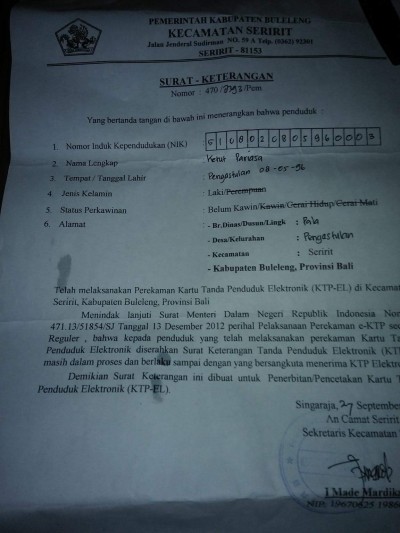 PEMERINTAH KABUPATEN BULELENG
KECAMATAN SERIRIT
Jalan Jenderal Sudirman NO. 59 A Telp. (0362) 92301
SERIRIT - 81153
SURAT - KETERANGAN
Nomor : 470 / /Pem
Yang bertanda tangan di bawah ini menerangkan bahwa penduduk :
1. Nomor Induk Kependudukan (NIK) 5108020805960003
2. Nama Lengkap : Ketut Pariasa
3. Tempat / Tanggal Lahir : Pengastulan 08-05-96
4. Jenis Kelamin : Laki/Perempuan
5. Status Perkawinan : Belum Kawin/Kawin/Cerai Hidup/Cerai Mati
6. Alamat : - Br.Dinas/Dusun/Lingk : Pala
- Desa/Kelurahan : Pengastulan
- Kecamatan : Seririt
- Kabupaten Buleleng, Provinsi Bali
Telah melaksanakan Perekaman Kartu Tanda Penduduk Elektronik (KTP-EL) di Kecamat
Seririt, Kabupaten Buleleng, Provinsi Bali
Menindak lanjuti Surat Menteri Dalam Negeri Republik Indonesia Nom
471.13/51854/SJ Tanggal 13 Desember 2012 perihal Pelaksanaan Perekaman e-KTP sec
Reguler , bahwa kepada penduduk yang telah melaksanakan perekaman Kartu Ta
Penduduk Elektronik diserahkan Surat Keterangan Tanda Penduduk Elektronik (KT
masih dalam proses dan berlaku sampai dengan yang bersangkuta menerima KTP Elektro
Demikian Surat Keterangan ini dibuat untuk Penerbitan/Pencetakan Kartu T
Penduduk Elektronik (KTP-EL).
Singaraja, 27 September
An Camat Seririt
Sekretaris Kecamatan
I Made Mardika
NIP. 19670625 1986